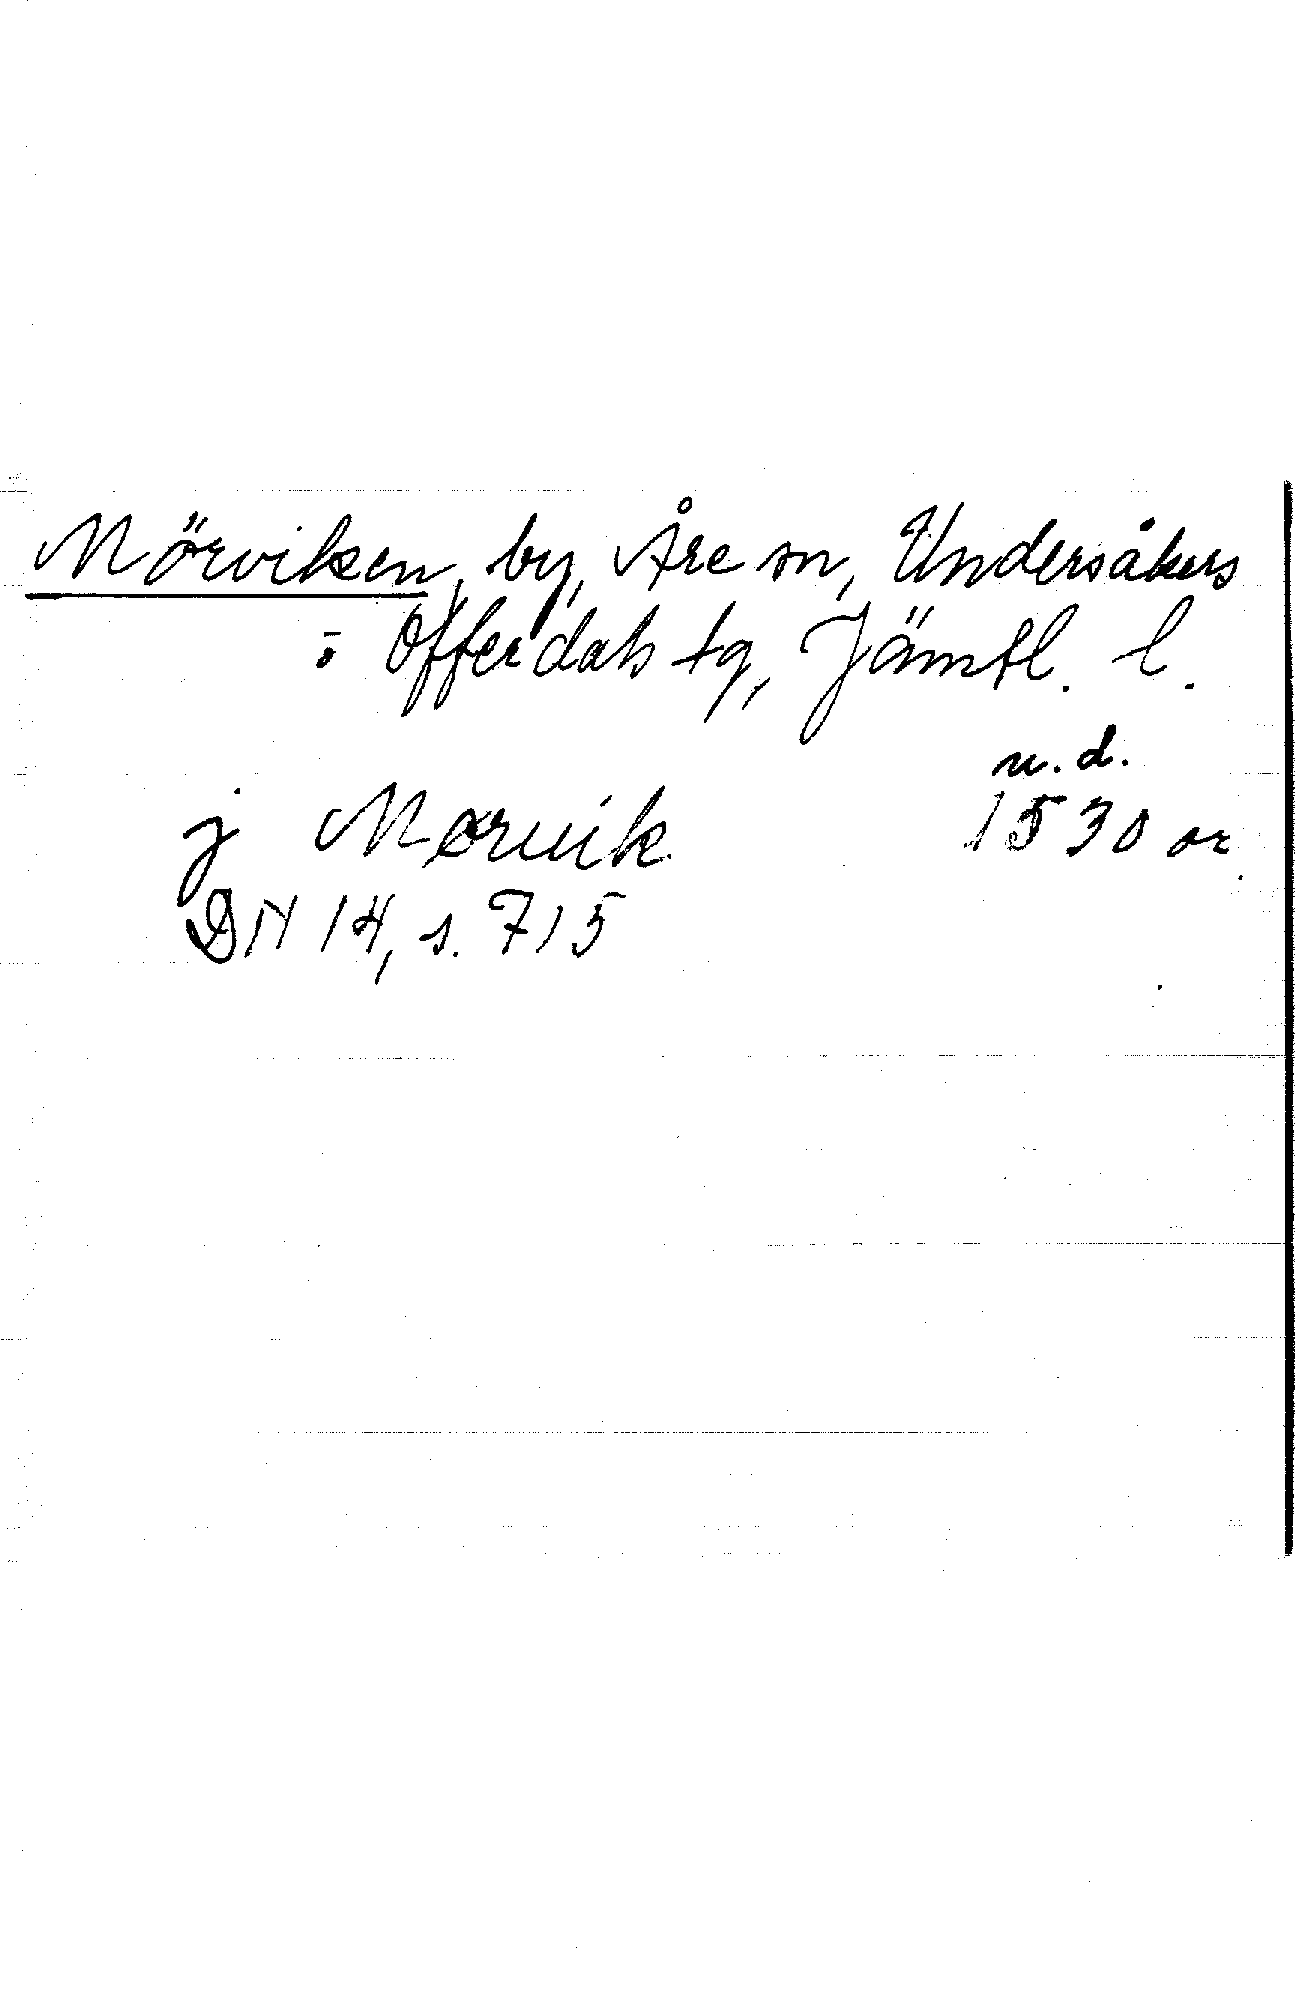 Mörviken, by, Åre sn, Undersåkers
o Offerdals tg, Jämtl. l.
u. d.
j Møruik 1530 or
DN 14, s. 715